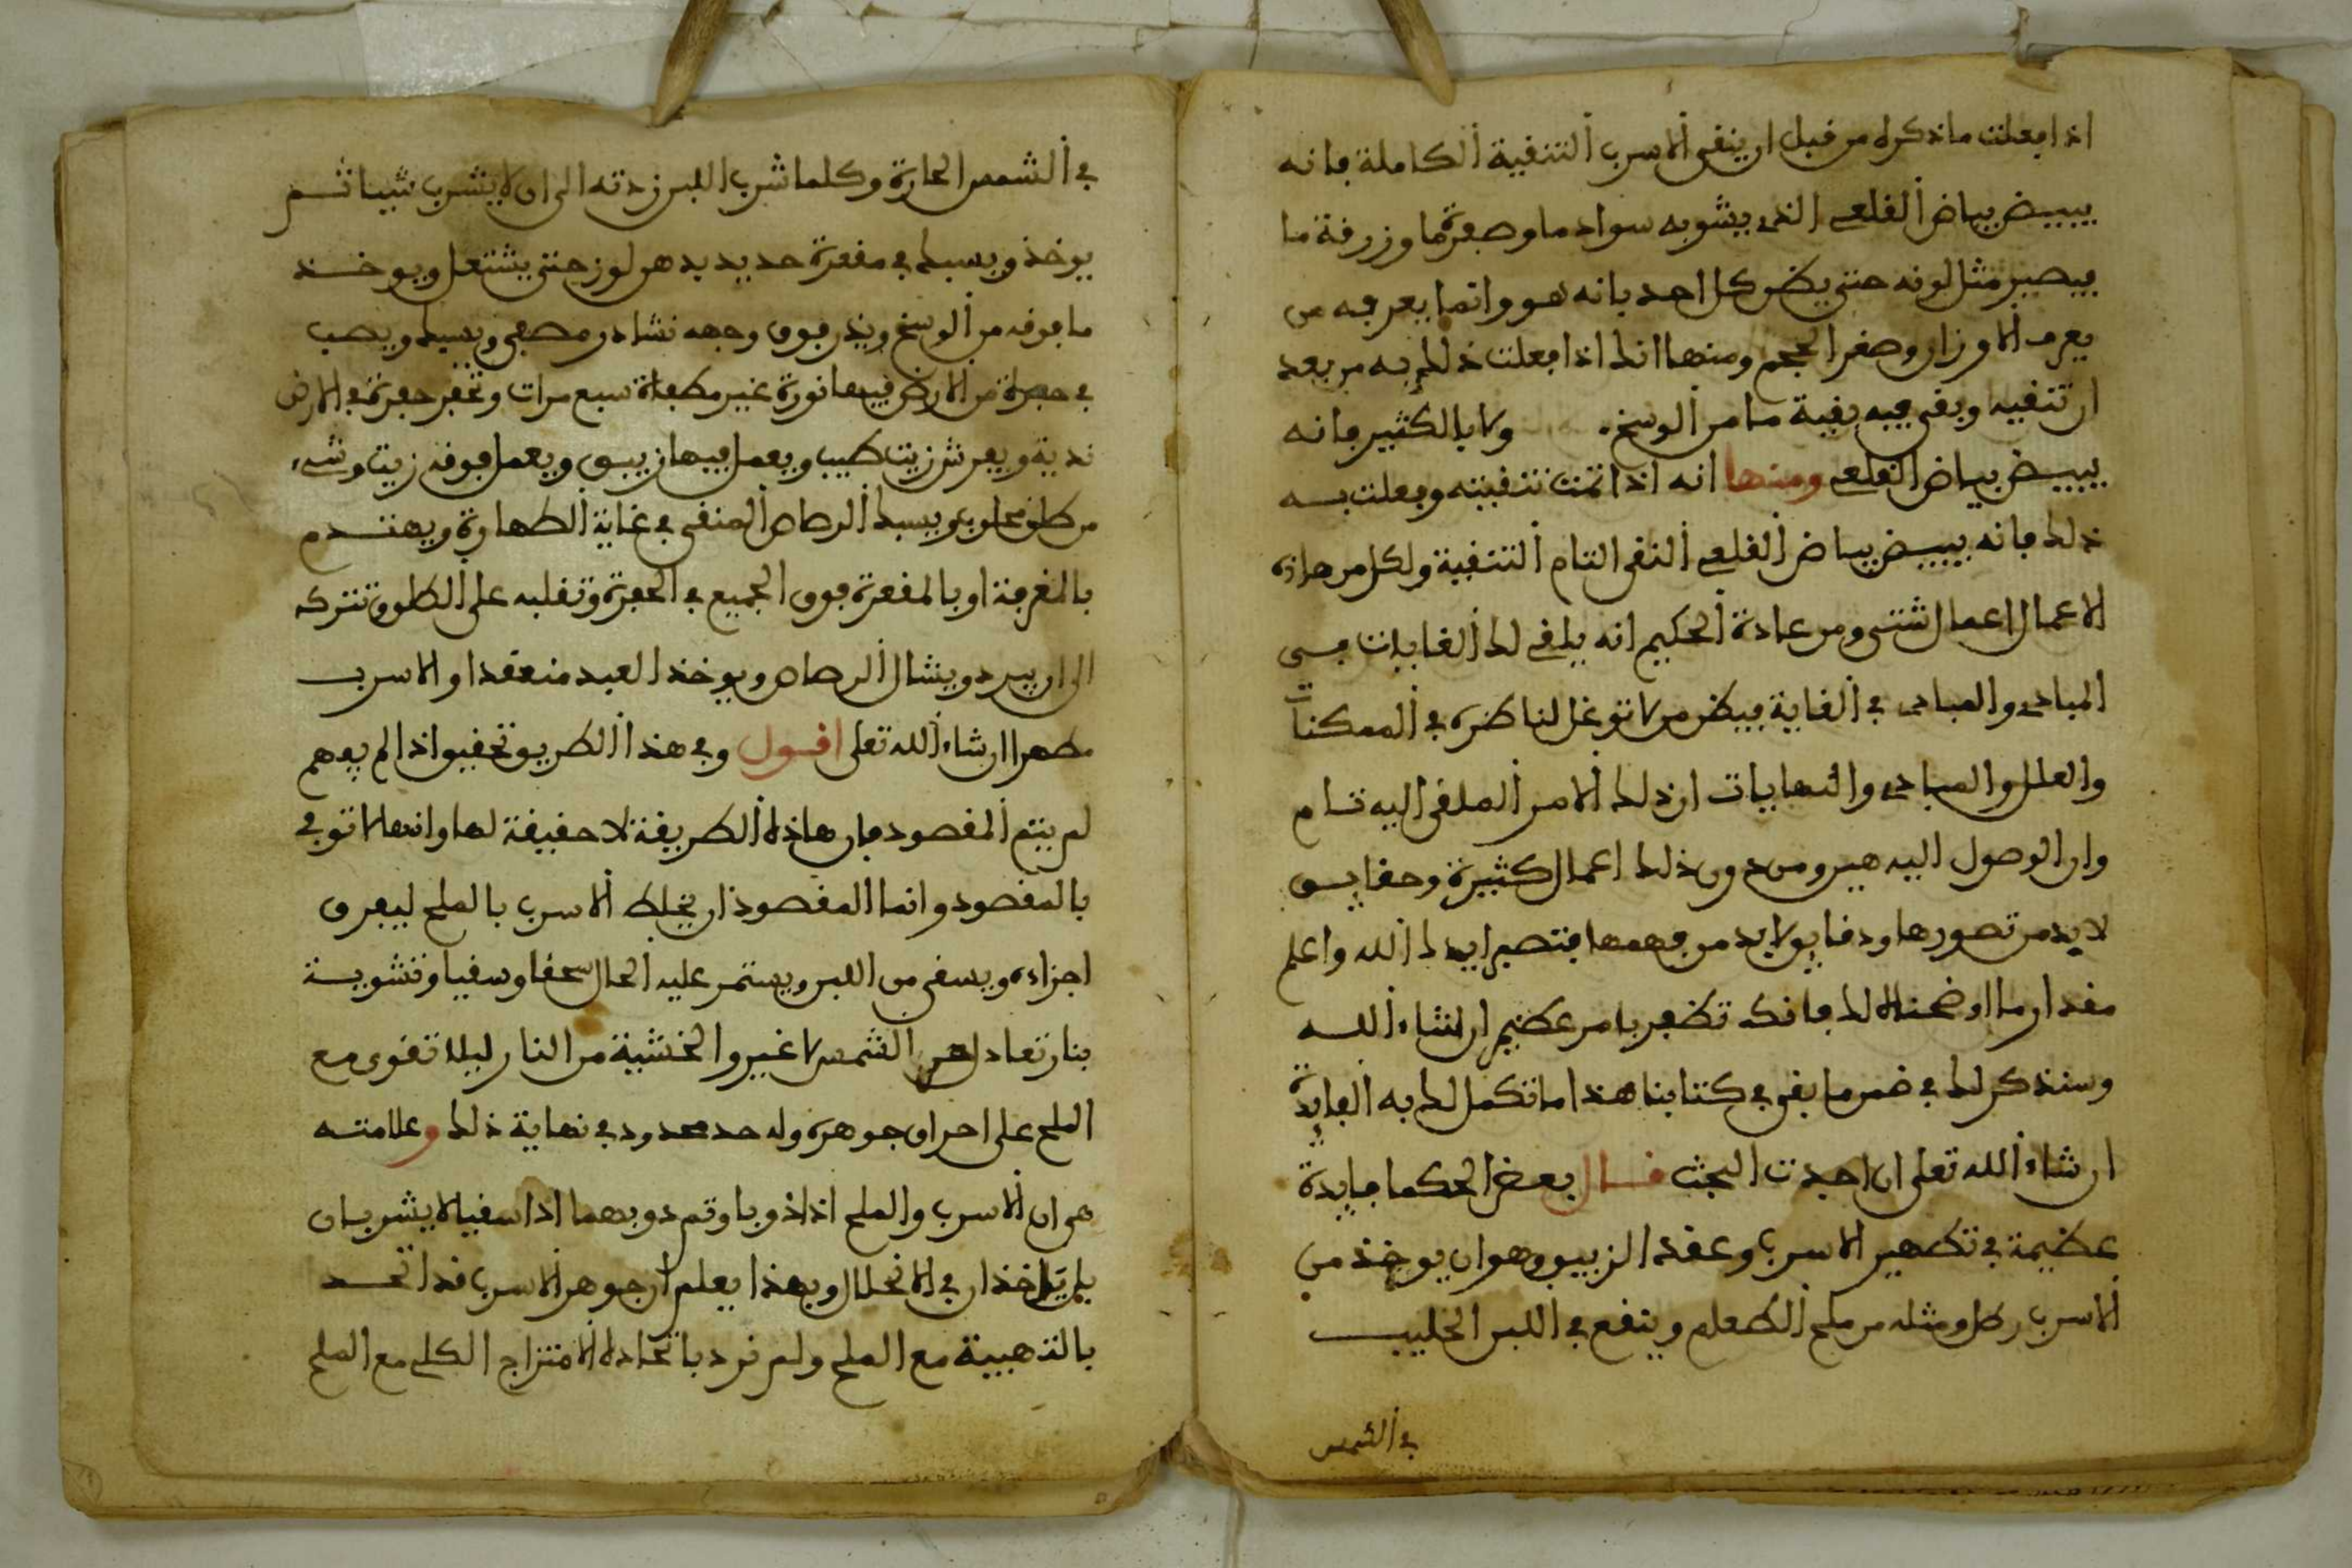 اذا فعلت ما ذكره من قبل ان ينقى الاسرب التنقية الكاملة فانه
يبيض بياض القلعي الذي يشوبه سواد ما وصفرة ما وزرقة ما
فيصير مثل لونه حتى يظن كل احد بانه هو وانما يعرفه من
يعرف الاوزان وصغر الحجم ومنها انك اذا فعلت ذلك به من بعد
ان تنقيه وبقى فيه بقية ما من الوسخ ولا بالكثير فانه
يبيض بياض القلعي ومنها انه اذا تمت تنقيته وفعلت به
ذلك فانه يبيض بياض القلعي النقي التام التنقية ولكل من هاذه
الاعمال اعمال شتى ومن عادة الحكيم انه يلقي لك الغايات في
المبادي والمبادي في الغاية فيظن من لا توغل لناظره في الممكنات
والعلل والمبادي والنهايات ان ذلك الامر الملقى اليه تام
وان الوصول اليه هين ومن دون ذلك اعمال كثيرة وحقايق
لا بد من تصورها ودقايق لا بد من فهمها فتصبر ايدك الله واعلم
مقدار ما اوضحناه لك فانك تظفر بامر عظيم ان شاء الله
وسنذكر لك في ضمن ما بقي في كتابنا هذا ما تكمل لك به الفايدة
ان شاء الله تعلى ان اجدت البحث قال بعض الحكما فايدة
عظيمة في تطهير الاسرب وعقد الزيبق وهو ان يوخذ من
الاسرب رطل ومثله من ملح الطعام وينقع في اللبن الحليب
في الشمس
في الشمس الحارة وكلما شرب اللبن زدته الى ان لا يشرب شيا ثم
يوخذ ويسبك في مغفرة حديد بدهن لوز حتى يشتعل ويوخذ
ما فوقه من الوسخ ويذر فوق وجهه نشادر مصعى ويسبك ويصب
في حفرة من الارض فيها نورة غير مطفاة سبع مرات وتحفر حفرة في الارض
ندية ويفرش زيت طيب ويعمل فيها زيبق ويعمل فوقه زيت وشيء
من طلق محلوب ويسبك الرصاص المنقى في غاية الطهارة ويهندم
بالمغرفة او بالمغفرة فوق الجميع في الحفرة وتقلبه على الطلق وتتركه
الى ان يبرد ويشال الرصاص ويوخذ العبد منعقدا والاسرب
مطهرا ان شاء الله تعلى اقول وفي هذا الطريق تحقيق اذا لم يفهم
لم يتم المقصود فان هاذه الطريقة لا حقيقة لها وانها لا توفي
بالمقصود وانما المقصود ان يخلط الاسرب بالملح ليفرق
اجزاءه ويسقى من اللبن ويستمر عليه الحال سحقا وسقيا وتشوية
بنار تعادل حر الشمس لا غير والخشية من النار ليلا تقوى مع
الملح على احراق جوهره وله حد محدود في نهاية ذلك وعلامته
هي ان الاسرب والملح اذا ذوبا وتم ذوبهما اذا سقيا لا يشربان
بل ياخذان في الانحلال وبهذا يعلم ان جوهر الاسرب قد اتحد
بالذهبية مع الملح ولم نرد باتحاده الامتزاج الكلي مع الملح